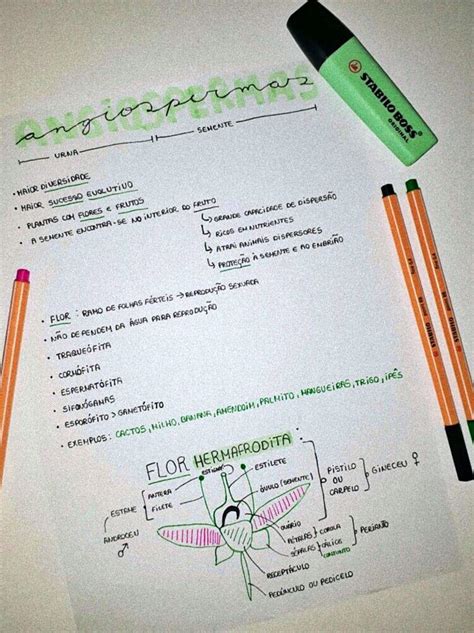 ANGIOSPERMAS
angiospermas
URNA SEMENTE
• MAIOR DIVERSIDADE
• MAIOR SUCESSO EVOLUTIVO
• PLANTAS COM FLORES E FRUTOS
• A SEMENTE ENCONTRA-SE NO INTERIOR DO FRUTO
↳ GRANDE CAPACIDADE DE DISPERSÃO
↳ RICOS EM NUTRIENTES
↳ ATRAI ANIMAIS DISPERSORES
↳ PROTEÇÃO À SEMENTE E AO EMBRIÃO
• FLOR : RAMO DE FOLHAS FÉRTEIS → REPRODUÇÃO SEXUADA
• NÃO DEPENDEM DA ÁGUA PARA REPRODUÇÃO
• TRAQUEÓFITA
• CORMÓFITA
• ESPERMATÓFITA
• SIFONÓGAMAS
• ESPORÓFITO > GAMETÓFITO
• EXEMPLOS: CACTOS, MILHO, BANANA, AMENDOIM, PALMITO, MANGUEIRAS, TRIGO, IPÊS
FLOR HERMAFRODITA:
ESTIGMA
ANTERA
FILETE
ESTAME
ANDROCEU
♂
ESTILETE
ÓVULO (SEMENTE)
OVÁRIO
PISTILO
OU
CARPELO
GINECEU ♀
PÉTALAS } COROLA
SÉPALAS } CÁLICE
CONJUNTO
PERIANTO
RECEPTÁCULO
PEDÚNCULO OU PEDICELO
STABILO BOSS
ORIGINAL
STABILO
STABILO